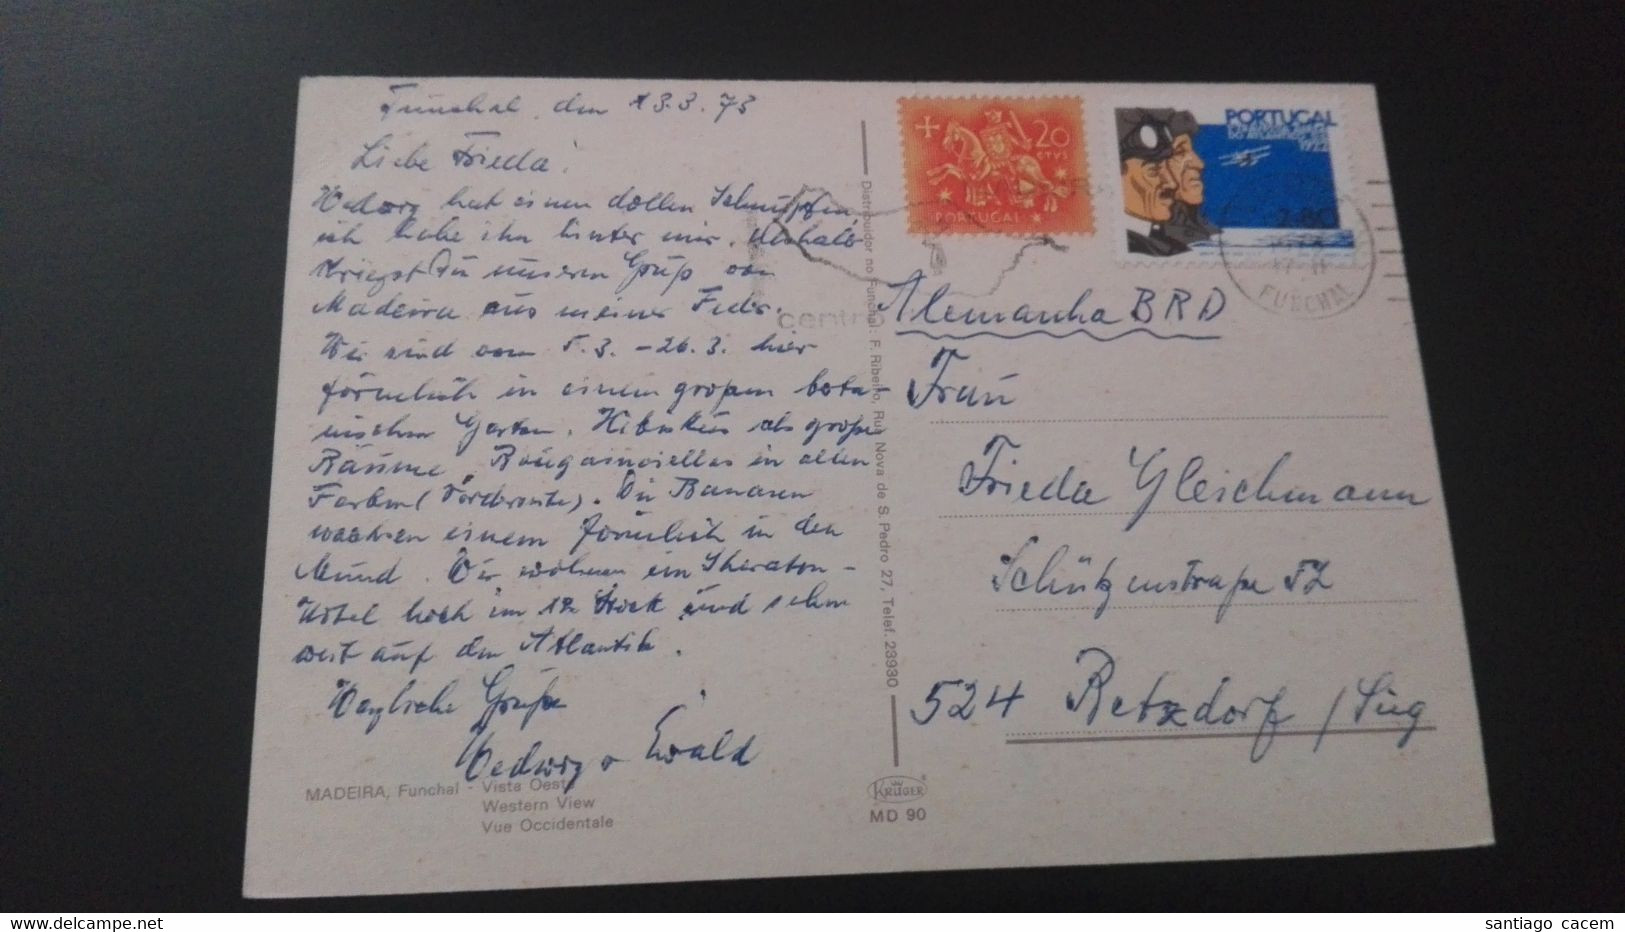 Funchal, den 13.3.73
Liebe Frieda!
Hedwig hat einen dollen Schnupfen,
ich habe ihn hinter mir. Deshalb
kriegst Du unseren Gruß von
Madeira aus meiner Feder.
Wir sind vom 5.3. - 26.3. hier
förmlich in einem großen bota-
nischen Garten. Hibiskus als große
Bäume, Bougainviellas in allen
Farben (Vorderseite). Die Bananen
wachsen einem förmlich in den
Mund. Wir wohnen im Sheraton-
Hotel hoch im 12. Stock und sehen
weit auf den Atlantik.
Herzliche Grüße
Hedwig + Ewald
MADEIRA, Funchal - Vista Oeste
Western View
Vue Occidentale
Distribuidor no Funchal: F. Ribeiro, Rua Nova de S. Pedro 27, Telef. 23930
KRÜGER
MD 90
20
CTVS
PORTUGAL
PORTUGAL
1922
2.80
FUNCHAL
centro
Alemanha BRD
Frau
Frieda Gleichmann
Schützenstraße 52
524 Betzdorf / Sieg
www.delcampe.net
santiago cacem